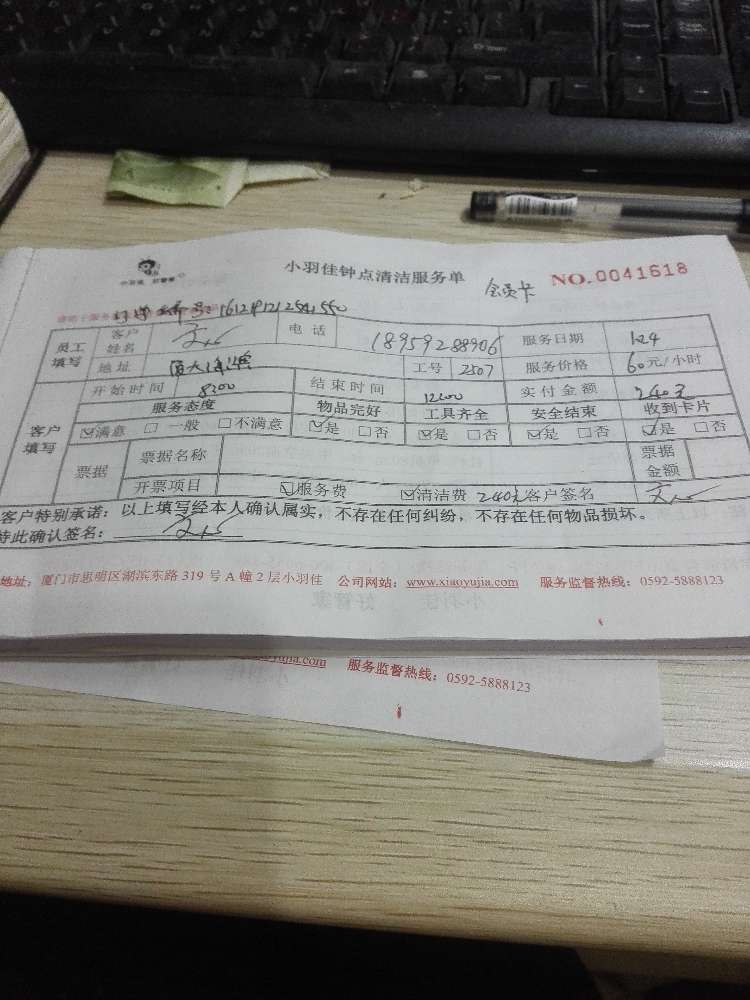 小羽佳 好管家
小羽佳钟点清洁服务单
会员卡
NO.0041618
员工填写
客户姓名
电话 18959288906
服务日期 1.24
地址
工号 2507
服务价格 60元/小时
客户填写
开始时间 8:00
结束时间 12:00
实付金额 240元
服务态度 物品完好 工具齐全 安全结束 收到卡片
☑满意 □一般 □不满意 ☑是 □否 ☑是 □否 ☑是 □否 ☑是 □否
票据
票据名称
票据金额
开票项目 ☑服务费 ☑清洁费 240元 客户签名
客户特别承诺：以上填写经本人确认属实，不存在任何纠纷，不存在任何物品损坏。
特此确认签名：
地址：厦门市思明区湖滨东路 319 号 A 幢 2 层小羽佳 公司网站：www.xiaoyujia.com 服务监督热线：0592-5888123
服务监督热线：0592-5888123